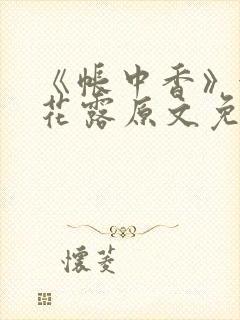 《帐中香》
花露原文免
怀菱